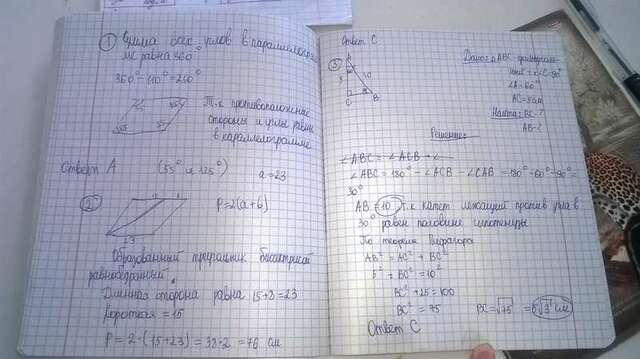 ① Сумма всех углов в параллелограм
ме равна 360°
360° - 110° = 250°
Т.к противоположные
стороны и углы равны
в параллелограмме
Ответ A (55° и 125°) a = 23
② P=2(a+b)
Образованный треугольник биссектрисой
равнобедренный.
Длинная сторона равна 15+8=23
Короткая = 15
P = 2·(15+23) = 38·2 = 76 см
Ответ C
③ Дано: △ABC
∠C=90°
∠A=60°
AC=5см
Найти: BC-?
AB-?
10
B
Решение:
∠ABC = ∠ACB + ∠
∠ABC = 180° - ∠ACB - ∠CAB = 180°-60°-90°=
30°
AB = 10 т.к катет лежащий против угла в
30° равен половине гипотенузы
По теореме Пифагора
AB² = AC² + BC²
5² + BC² = 10²
BC² + 25 = 100
BC² = 75 BC = √75 = 5√3 см
Ответ C